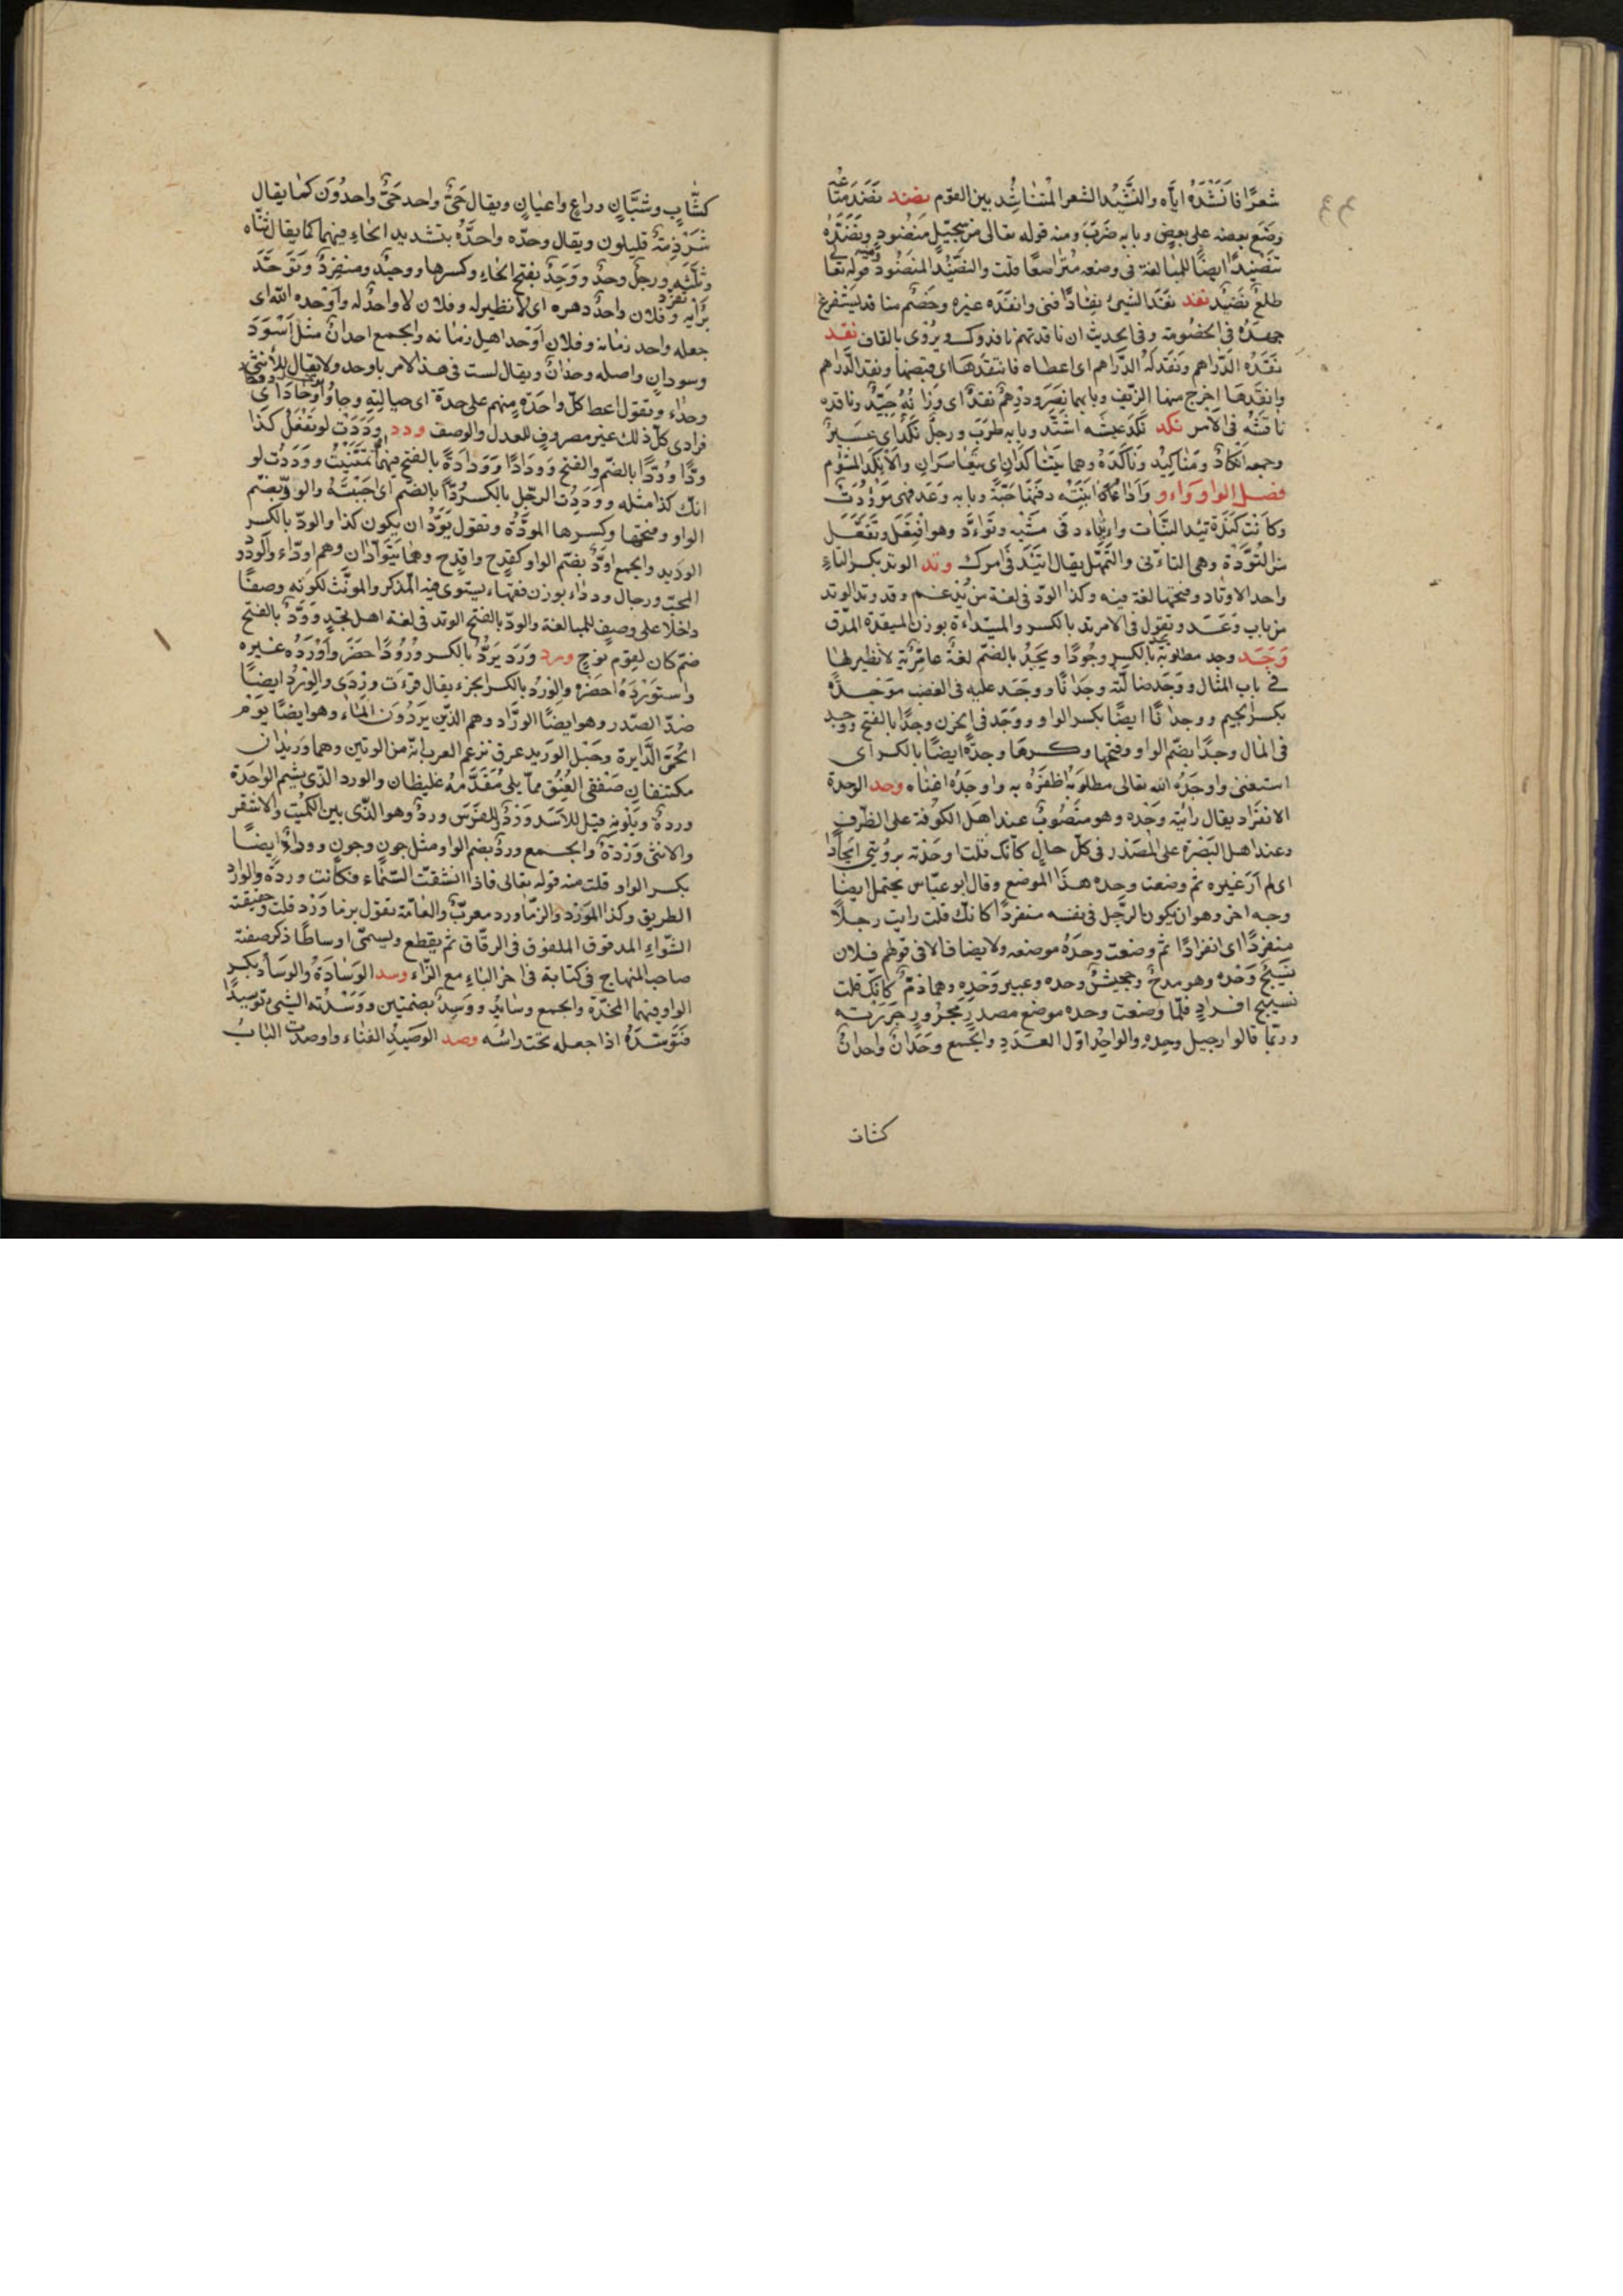 شعرًا فانشده اياه والنشيد الشعر المتناشد بين القوم نضد نضد متاعه
وضع بعضه على بعض وبابه ضرب ومنه قوله تعالى من سجيل منضود ونضده
تنضيدًا ايضًا للمبالغة فى وضعه متراصفًا قلت والنضيد المنضود ومنه قوله تعا
طلع نضيد نفد نفد الشيئ نفادًا فنى وانفده غيره وخصم منافد يستفرغ
جهده فى الخصومة وفى الحديث ان نافدتهم نافدوك ويروى بالقاف نقد
نقده الدراهم ونقد له الدراهم اى اعطاه فانتقدها اى قبضها ونقد الدراهم
وانتقدها اخرج منها الزيف وبابهما نصر ودرهم نقد اى وزانه جيد وناقده
ناقشه فى الامر نكد نكد عيشه اشتد وبابه طرب ورجل نكد اى عسير
وجمعه انكاد ومناكيد وناكده وهما يتناكدان اى يتعاسران والانكد المشوم
فصل الواو واءد وأد ابنته دفنها حية وبابه وعد فهى موؤدت
وكانت كندة تئد البنات واتاءد فى مشيه وتواءد وهو افتعل وتفعل
من التودة وهى التاءنى والتمهل يقال اتئد فى امرك وتد الوتد بكسر التاء
واحد الاوتاد وفتحها لغة فيه وكذا الود فى لغة من يدغم وقد وتد الوتد
من باب وعد وتقول فى الامر تد بالكسر والميتداءة بوزن الميقدة المدق
وجد وجد مطلوبه يجد بالكسر وجودًا ويجد بالضم لغة عامرية لا نظير لها
فى باب المثال ووجد ضالته وجدانًا ووجد عليه فى الغضب موجدة
بكسر الجيم ووجدانًا ايضًا بكسر الواو ووجد فى الحزن وجدًا بالفتح ووجد
فى المال وجدًا بضم الواو وفتحها وكسرها وجدة ايضًا بالكسر اى
استغنى واوجده الله تعالى مطلوبه اظفره به واوجده اغناه وحد الوحدة
الانفراد يقال رائيته وحده وهو منصوب عند اهل الكوفة على الظرف
وعند اهل البصرة على المصدر فى كل حال كانك قلت اوحدته برؤيتى ايحادًا
اى لم ار غيره ثم وضعت وحده هذا الموضع وقال ابو عباس يحتمل ايضًا
وجه اخر وهو ان يكون الرجل فى نفسه منفردًا كانك قلت رايت رجلًا
منفردًا اى انفرادًا ثم وضعت وحده موضعه ولا يضاف الا فى قولهم فلان
نسيج وحده وهو مدح وجحيش وحده وعيير وحده وهما ذم كانك قلت
نسيج افراد فلما وضعت وحده موضع مصدر مجرور جررته
وربما قالوا رجيل وحده والواحد اول العدد والجمع وحدان واحدان
كشاب
كشاب وشبان وراع واعيان ويقال حى واحد حى واحدون كما يقال
شرذمة قليلون ويقال وحده واحده بتشديد الحاء فيهما كما يقال ثناه
وثلثه ورجل وحد ووحد بفتح الحاء وكسرها ووحيد ومنفرد وتوحد
برأيه تفرد وفلان واحد دهره اى لا نظير له وفلان لا واحد له واوحده الله اى
جعله واحد زمانه وفلان اوحد اهل زمانه والجمع احدان مثل اسود
وسودان واصله وحدان ويقال لست فى هذا الامر باوحد ولا يقال للانثى
وحداء وتقول اعط كل واحدة منهم على حدة اى حياله وجاؤا
فرادى كل ذلك غير مصروف للعدل والوصف ودد وددت لو تفعل كذا
ودًا وودًا بالضم والفتح وودادًا وودادة بالفتح فيهما تمنيت ووددت لو
انك كذا مثله ووددت الرجل بالكسر ودًا بالضم اى احببته والود بضم
الواو وفتحها وكسرها المودة وتقول بودى ان يكون كذا والود بالكسر
الوديد والجمع اود بضم الواو كقدح واقدح وهما يتوادان وهم اوداء والودود
المحب ورجال ودداء بوزن فقهاء يستوى فيه المذكر والمونث لكونه وصفًا
داخلا على وصف للمبالغة والود بالفتح الوتد فى لغة اهل نجد وود بالفتح
صنم كان لقوم نوح ورد ورد يرد بالكسر ورودًا حضر واورده غيره
واستورده احضره والورد بالكسر الجزء يقال قرءت وردى والورد ايضًا
ضد الصدر وهو ايضًا الوراد وهم الذين يردون الماء وهو ايضًا يوم
الحمى الدايرة وحبل الوريد عرق تزعم العرب انه من الوتين وهما وريدان
مكتنفان صفقى العنق مما يلى مقدمه غليظان والورد الذى يشم الواحدة
وردة وبلونه قيل للاسد ورد وللفرس ورد وهو الذى بين الكميت والاشقر
والانثى وردة والجمع ورد بضم الواو مثل جون وجون ووراد ايضًا
بكسر الواو قلت منه قوله تعالى فاذا انشقت السماء فكانت وردة والوارد
الطريق وكذا المورد والزماورد معرب والعامة تقول بزماورد قلت وحقيقته
الشواء المدقوق الملفوف فى الرقاق ثم يقطع ويسمى اوساطًا ذكر صفته
صاحب المنهاج فى كتابه فى اخر الباء مع الزاء وسد الوسادة والوساد بكسر
الواو فيهما المخدة والجمع وسائد ووسد بضمتين ووسدته الشيئ توسيدًا
فتوسده اذا جعله تحت رائسه وصد الوصيد الفناء واوصدت الباب